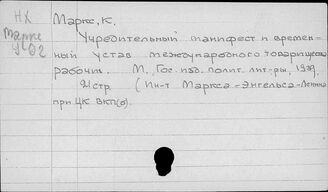 НХ
Маркс, К.
Маркс
У-02
Учредительный манифест и времен-
ный устав международного товарищества
рабочих. М., Гос. изд. полит. лит-ры, 1939.
21стр (Ин-т Маркса-Энгельса-Ленина
при ЦК ВКП(б).